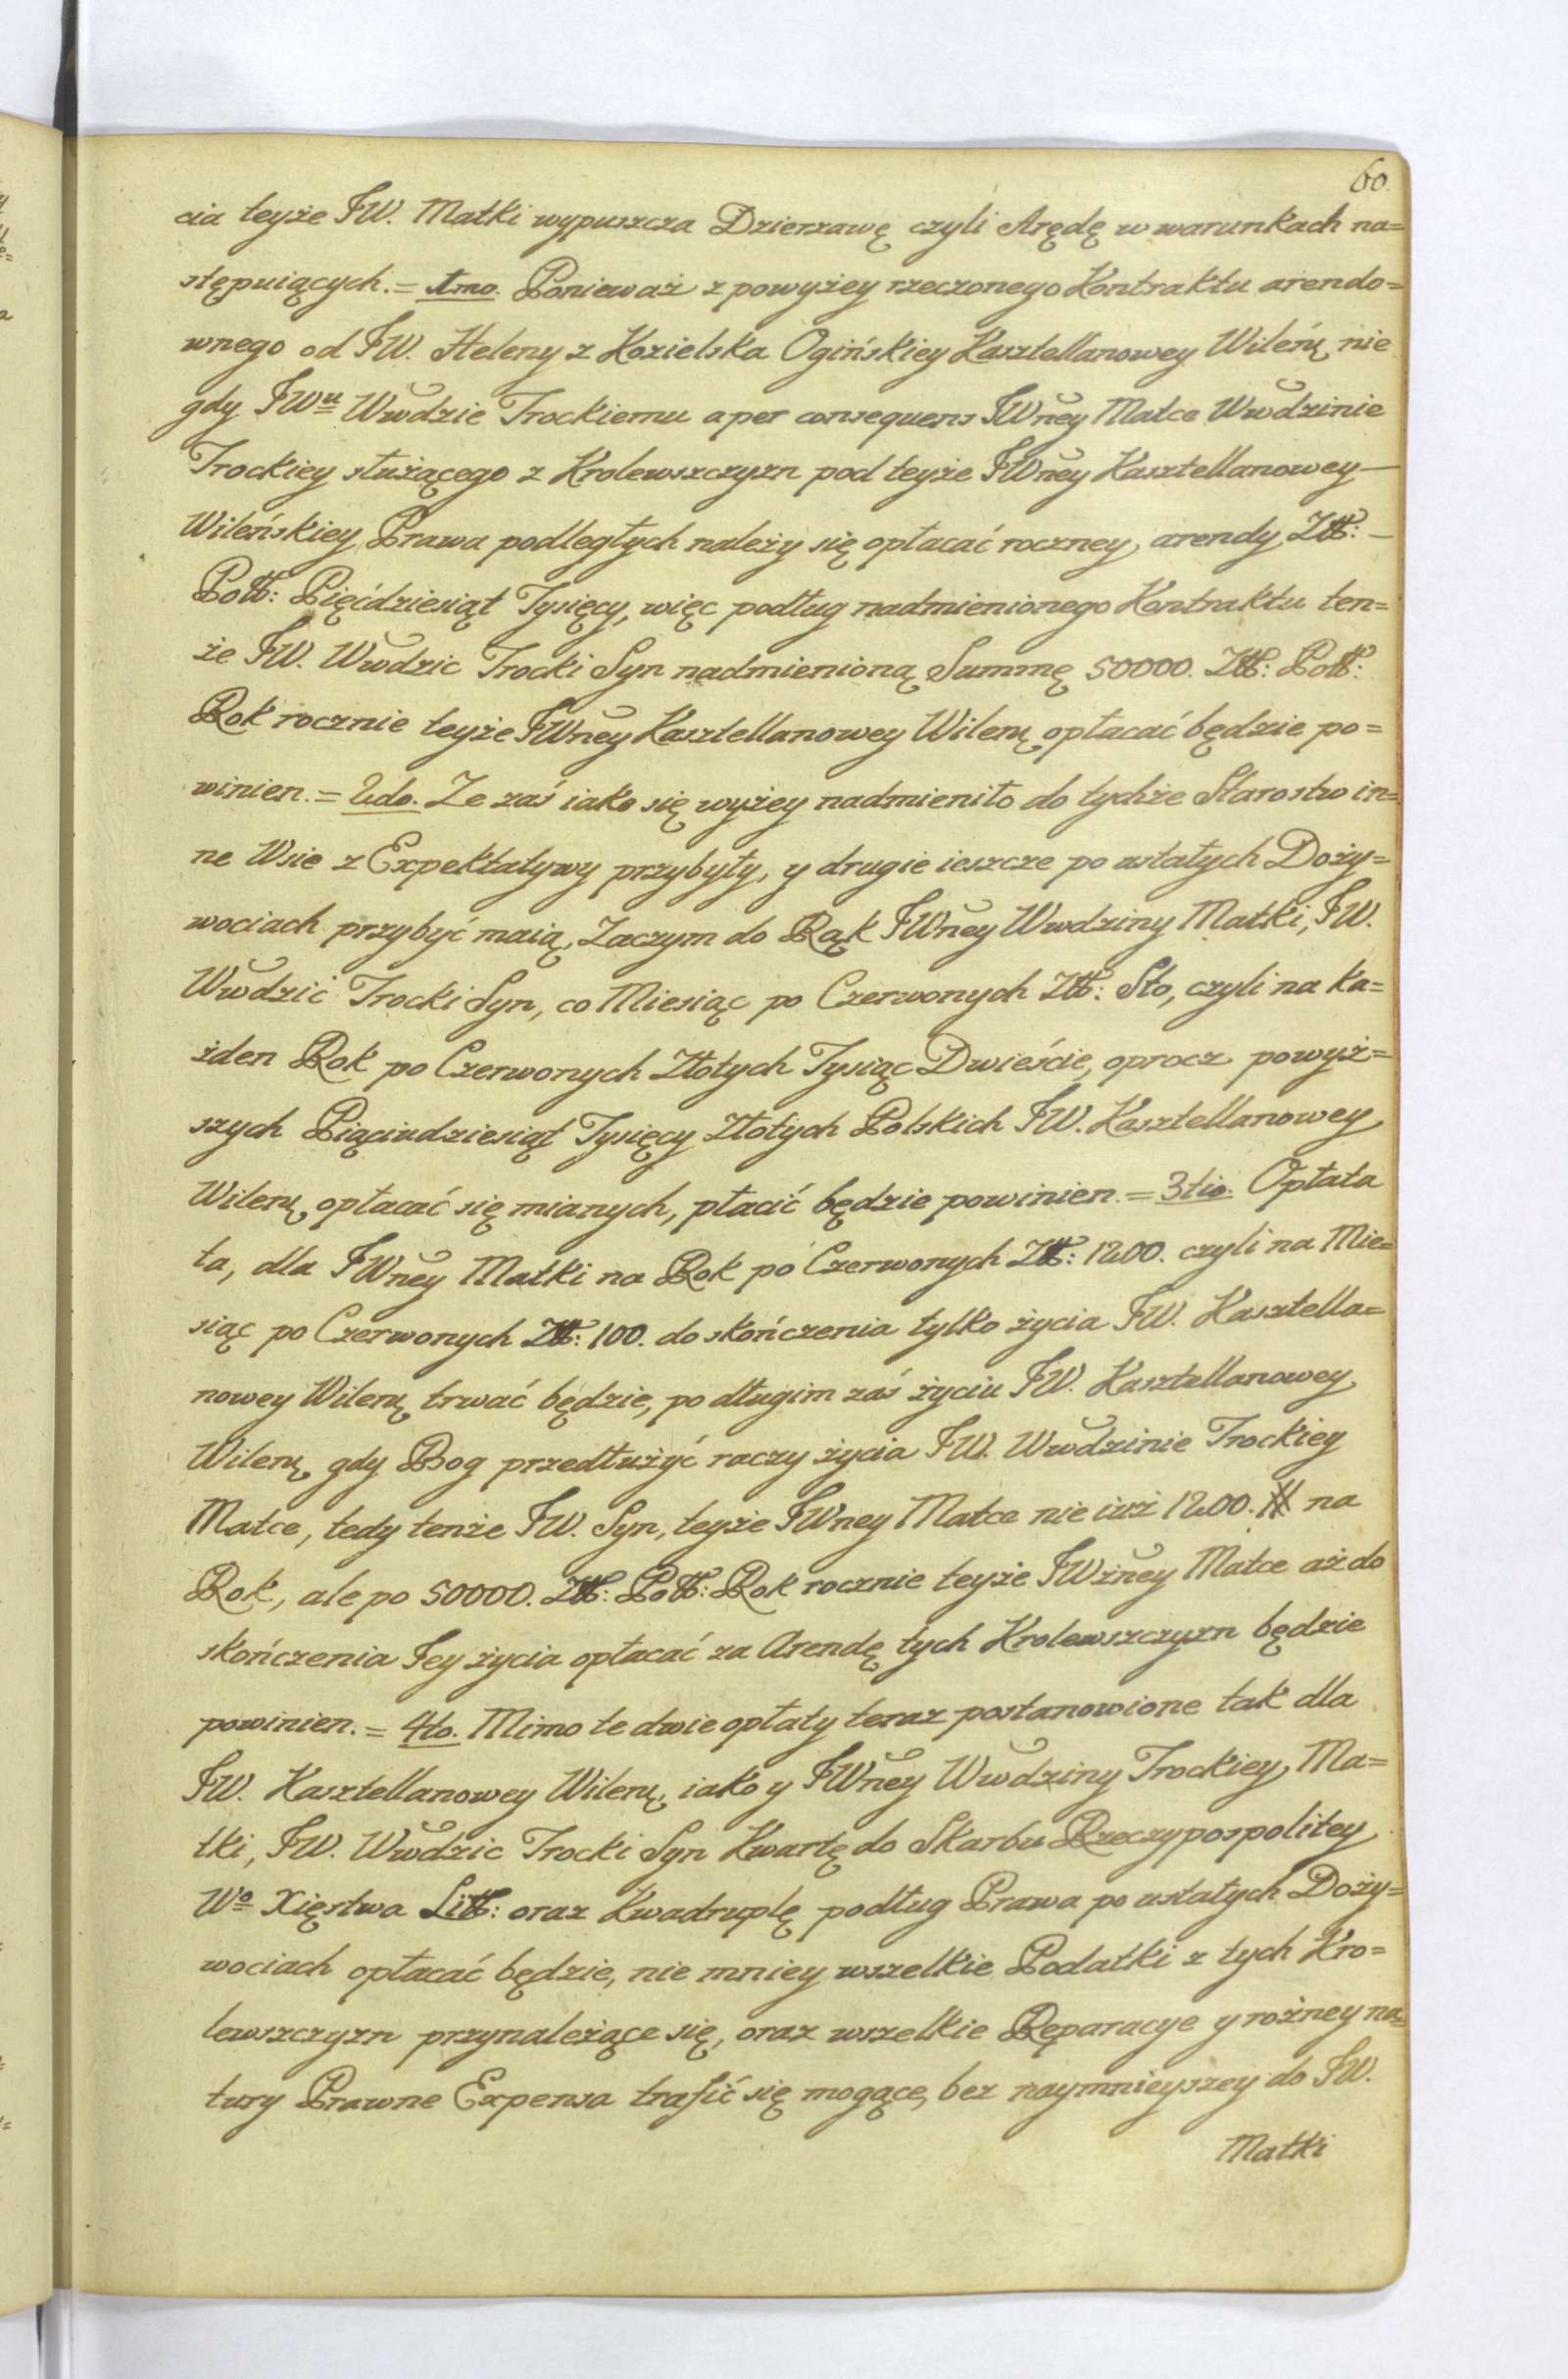 60.
cia teyże JW. Matki wypuszcza Dzierzawę czyli Arędę w warunkach na=
stępuiących. = 1mo. Ponieważ z powyżey rzeczonego Kontraktu arendo=
wnego od JW. Heleny z Kozielska Ogińskiey Kasztellanowey Wileńſ nie
gdy JWu Wwdzie Trockiemu a per consequens JWney Matce Wwdzinie
Trockiey służącego z Krolewszczyzn pod teyże JWney Kasztellanowey —
Wileńskiey Prawa podległych należy się opłacać roczney arendy Złł: —
Poll: Pięćdziesiąt Tysięcy, więc podług nadmienionego Kontraktu ten=
że JW. Wwdzic Trocki Syn nadmienioną Summę 50000. Złł: Poll:
Rok rocznie teyże JWney Kasztellanowey Wilenſ opłacać będzie po=
winien. = 2do. Ze zaś iako się wyżey nadmieniło do tychże Starostw in=
ne Wsie z Expektatywy przybyły, y drugie ieszcze po ustałych Doży=
wociach przybyć maią, Zaczym do Rąk JWney Wwdziny Matki, JW.
Wwdzic Trocki Syn, co Miesiąc po Czerwonych Złł: Sto, czyli na ka=
żden Rok po Czerwonych Złotych Tysiąc Dwieście, oprocz powyż=
szych Piąciudziesiąt Tysięcy Złotych Polskich JW. Kasztellanowey
Wilenſ opłacać się mianych, płacić będzie powinien. = 3tio. Opłata
ta, dla JWney Matki na Rok po Czerwonych Złł: 1200. czyli na Mie=
siąc po Czerwonych Złł: 100. do skończenia tylko życia JW. Kasztella=
nowey Wilenſ trwać będzie, po długim zaś życiu JW. Kasztellanowey
Wilenſ gdy Bog przedłużyć raczy życia JW. Wwdzinie Trockiey
Matce, tedy tenże JW. Syn, teyże JWney Matce nie iuż 1200. # na
Rok, ale po 50000. Złł: Poll: Rok rocznie teyże JWżney Matce aż do
skończenia Jey życia opłacać za Arendę tych Krolewszczyzn będzie
powinien. = 4to. Mimo te dwie opłaty teraz postanowione tak dla
JW. Kasztellanowey Wilenſ, iako y JWney Wwdziny Trockiey Ma=
tki, JW. Wwdzic Trocki Syn Kwartę do Skarbu Rzeczypospolitey
Wo Xięstwa Litt: oraz Kwadruplę podług Prawa po ustałych Doży=
wociach opłacać będzie, nie mniey wszelkie Podatki z tych Kro=
lewszczyzn przynależące się, oraz wszelkie Reparacye y rożney na=
tury Prawne Expensa trafić się mogące, bez naymnieyszey do JW.
Matki